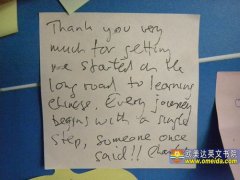 Thank you very
much for getting
me started on the
long road to learning
Chinese. Every journey
begins with a single
step, someone once
said!!
欧美达英文书院
www.omeida.com.cn